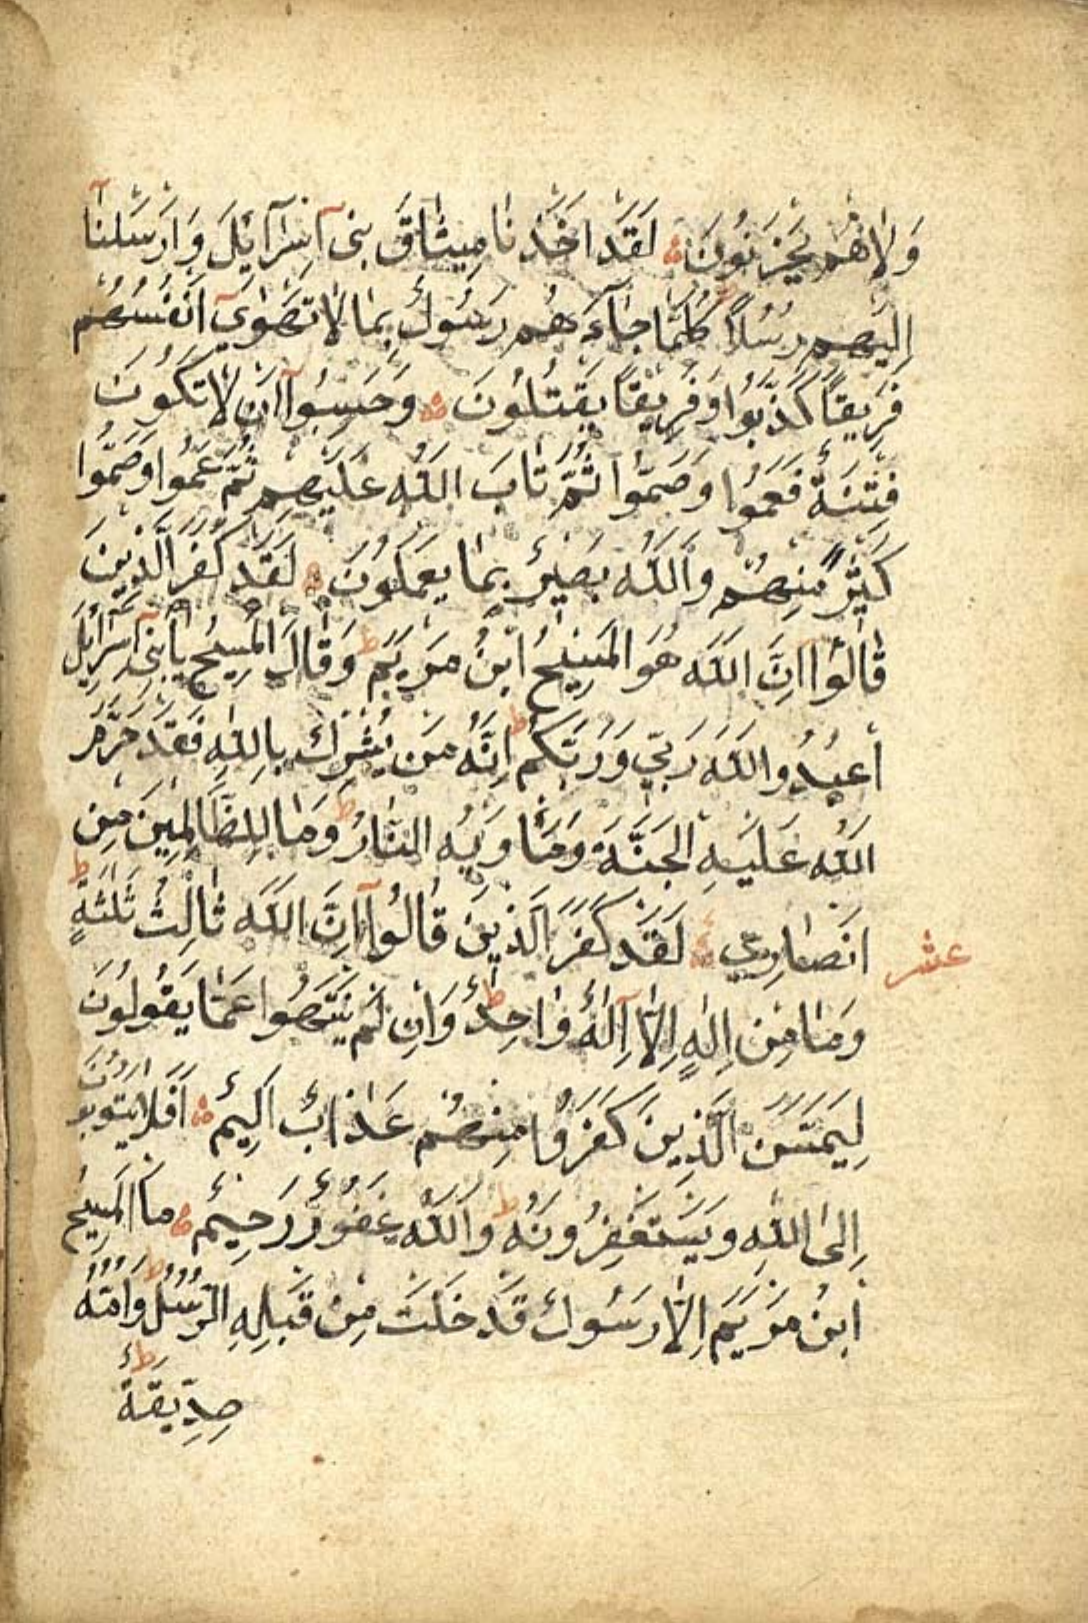 وَلَا هُمْ يَحْزَنُونَ لَقَدْ اَخَذْنَا مِيثَاقَ بَنِى اِسْرَآئِلَ وَاَرْسَلْنَآ
اِلَيْهِمْ رُسُلًا كُلَّمَا جَآءَهُمْ رَسُولٌ بِمَا لَا تَهْوٰىٓ اَنْفُسُهُمْ
فَرِيقًا كَذَّبُوا وَفَرِيقًا يَقْتُلُونَ وَحَسِبُوٓا اَنْ لَا تَكُونَ
فِتْنَةٌ فَعَمُوا وَصَمُّوا ثُمَّ تَابَ اللّٰهُ عَلَيْهِمْ ثُمَّ عَمُوا وَصَمُّوا
كَثِيرٌ مِنْهُمْ وَاللّٰهُ بَصِيرٌ بِمَا يَعْمَلُونَ لَقَدْ كَفَرَ الَّذِينَ
قَالُوٓا اِنَّ اللّٰهَ هُوَ الْمَسِيحُ ابْنُ مَرْيَمَ ط وَقَالَ الْمَسِيحُ يَابَنِىٓ اِسْرَآئِلَ
اعْبُدُوا اللّٰهَ رَبِّي وَرَبَّكُمْ ط اِنَّهُ مَنْ يُشْرِكْ بِاللّٰهِ فَقَدْ حَرَّمَ
اللّٰهُ عَلَيْهِ الْجَنَّةَ وَمَأْوٰيهُ النَّارُ ط وَمَا لِلظَّالِمِينَ مِنْ
اَنْصَارٍ لَقَدْ كَفَرَ الَّذِينَ قَالُوٓا اِنَّ اللّٰهَ ثَالِثُ ثَلٰثَةٍ ط
عشر
وَمَا مِنْ اِلٰهٍ اِلَّآ اِلٰهٌ وَاحِدٌ ط وَاِنْ لَمْ يَنْتَهُوا عَمَّا يَقُولُونَ
لَيَمَسَّنَّ الَّذِينَ كَفَرُوا مِنْهُمْ عَذَابٌ اَلِيمٌ اَفَلَا يَتُوبُونَ
اِلَى اللّٰهِ وَيَسْتَغْفِرُونَهُ ط وَاللّٰهُ غَفُورٌ رَحِيمٌ مَا الْمَسِيحُ
ابْنُ مَرْيَمَ اِلَّا رَسُولٌ قَدْ خَلَتْ مِنْ قَبْلِهِ الرُّسُلُ ط وَاُمُّهُ
صِدِّيقَةٌ ط